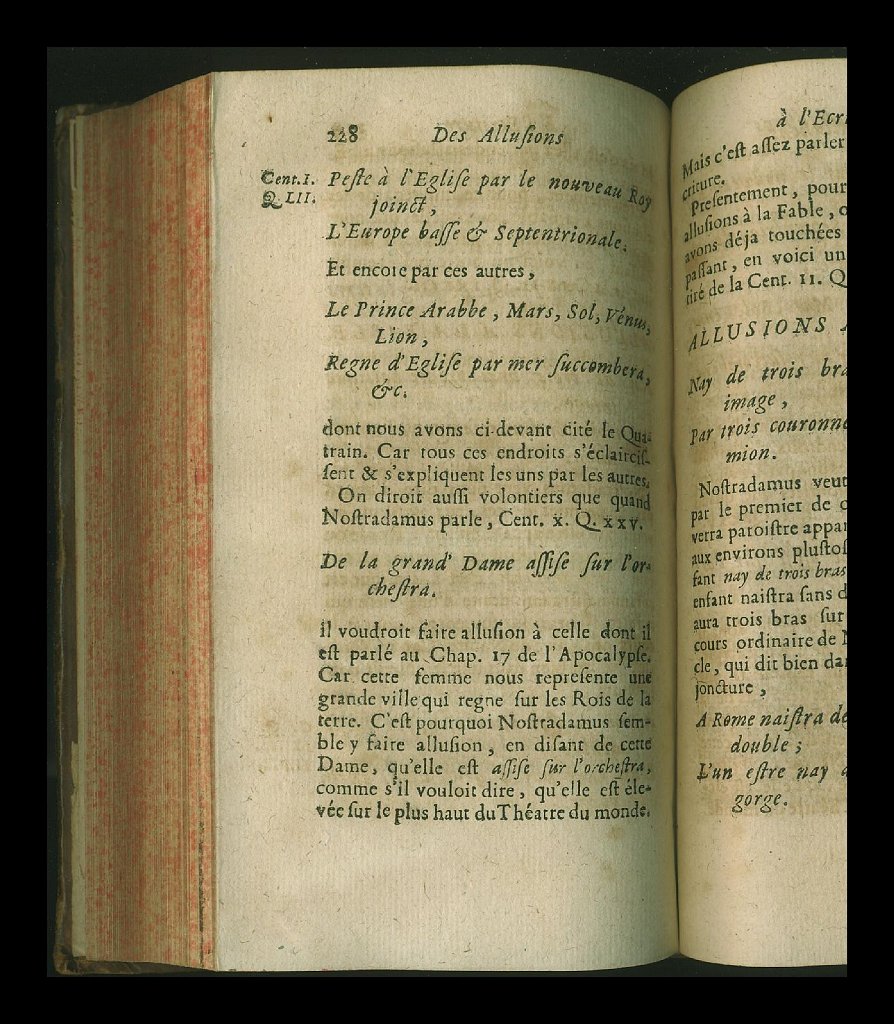 228 Des Alluſions
Cent. I. Peſte à l'Egliſe par le nouveau Roy
Q. LII. joinct,
L'Europe baſſe & Septentrionale.
Et encore par ces autres,
Le Prince Arabbe, Mars, Sol, Vénus,
Lion,
Regne d'Egliſe par mer ſuccombera,
&c.
dont nous avons ci-devant cité le Qua-
train. Car tous ces endroits s'éclairciſ-
ſent & s'expliquent les uns par les autres.
On diroit auſſi volontiers que quand
Noſtradamus parle, Cent. x. Q. xxv.
De la grand' Dame aſſiſe ſur l'or-
cheſtra.
il voudroit faire alluſion à celle dont il
eſt parlé au Chap. 17 de l'Apocalypſe.
Car cette femme nous repreſente une
grande ville qui regne ſur les Rois de la
terre. C'eſt pourquoi Noſtradamus ſem-
ble y faire alluſion, en diſant de cette
Dame, qu'elle eſt aſſiſe ſur l'orcheſtra,
comme s'il vouloit dire, qu'elle eſt éle-
vée ſur le plus haut du Théatre du monde.
à l'Ecr
Mais c'eſt aſſez parler
criture.
Preſentement, pour
alluſions à la Fable,
avons déja touchées
paſſant, en voici un
tiré de la Cent. 11. Q
ALLUSIONS
Nay de trois bra
image,
Par trois couronne
mion.
Noſtradamus veut
par le premier de
verra paroiſtre appa
aux environs pluſtoſ
ſant nay de trois bras
enfant naiſtra ſans d
aura trois bras ſur
cours ordinaire de
cle, qui dit bien da
joncture,
A Rome naiſtra de
double;
L'un eſtre nay
gorge.